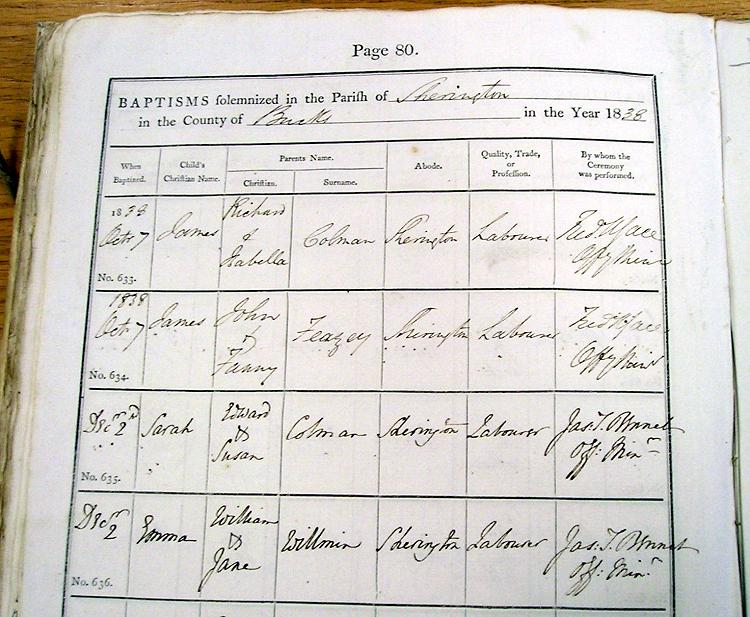 Page 80.
BAPTISMS solemnized in the Parish of Sherington
in the County of Bucks in the Year 1838
When Baptized. Child's Christian Name. Parents Name. Christian. Surname. Abode. Quality, Trade, or Profession. By whom the Ceremony was performed.
1838
Octr 7 James Richard & Isabella Colman Sherington Labourer
No. 633.
1838
Octr 7 James John & Fanny Feazey Sherington Labourer
No. 634.
Decr 2d Sarah Edward & Susan Colman Sherington Labourer Jas. T. Off: Minr
No. 635.
Decr 2 Emma William & Jane Willmin Sherington Labourer Jas. T. Off: Minr
No. 636.